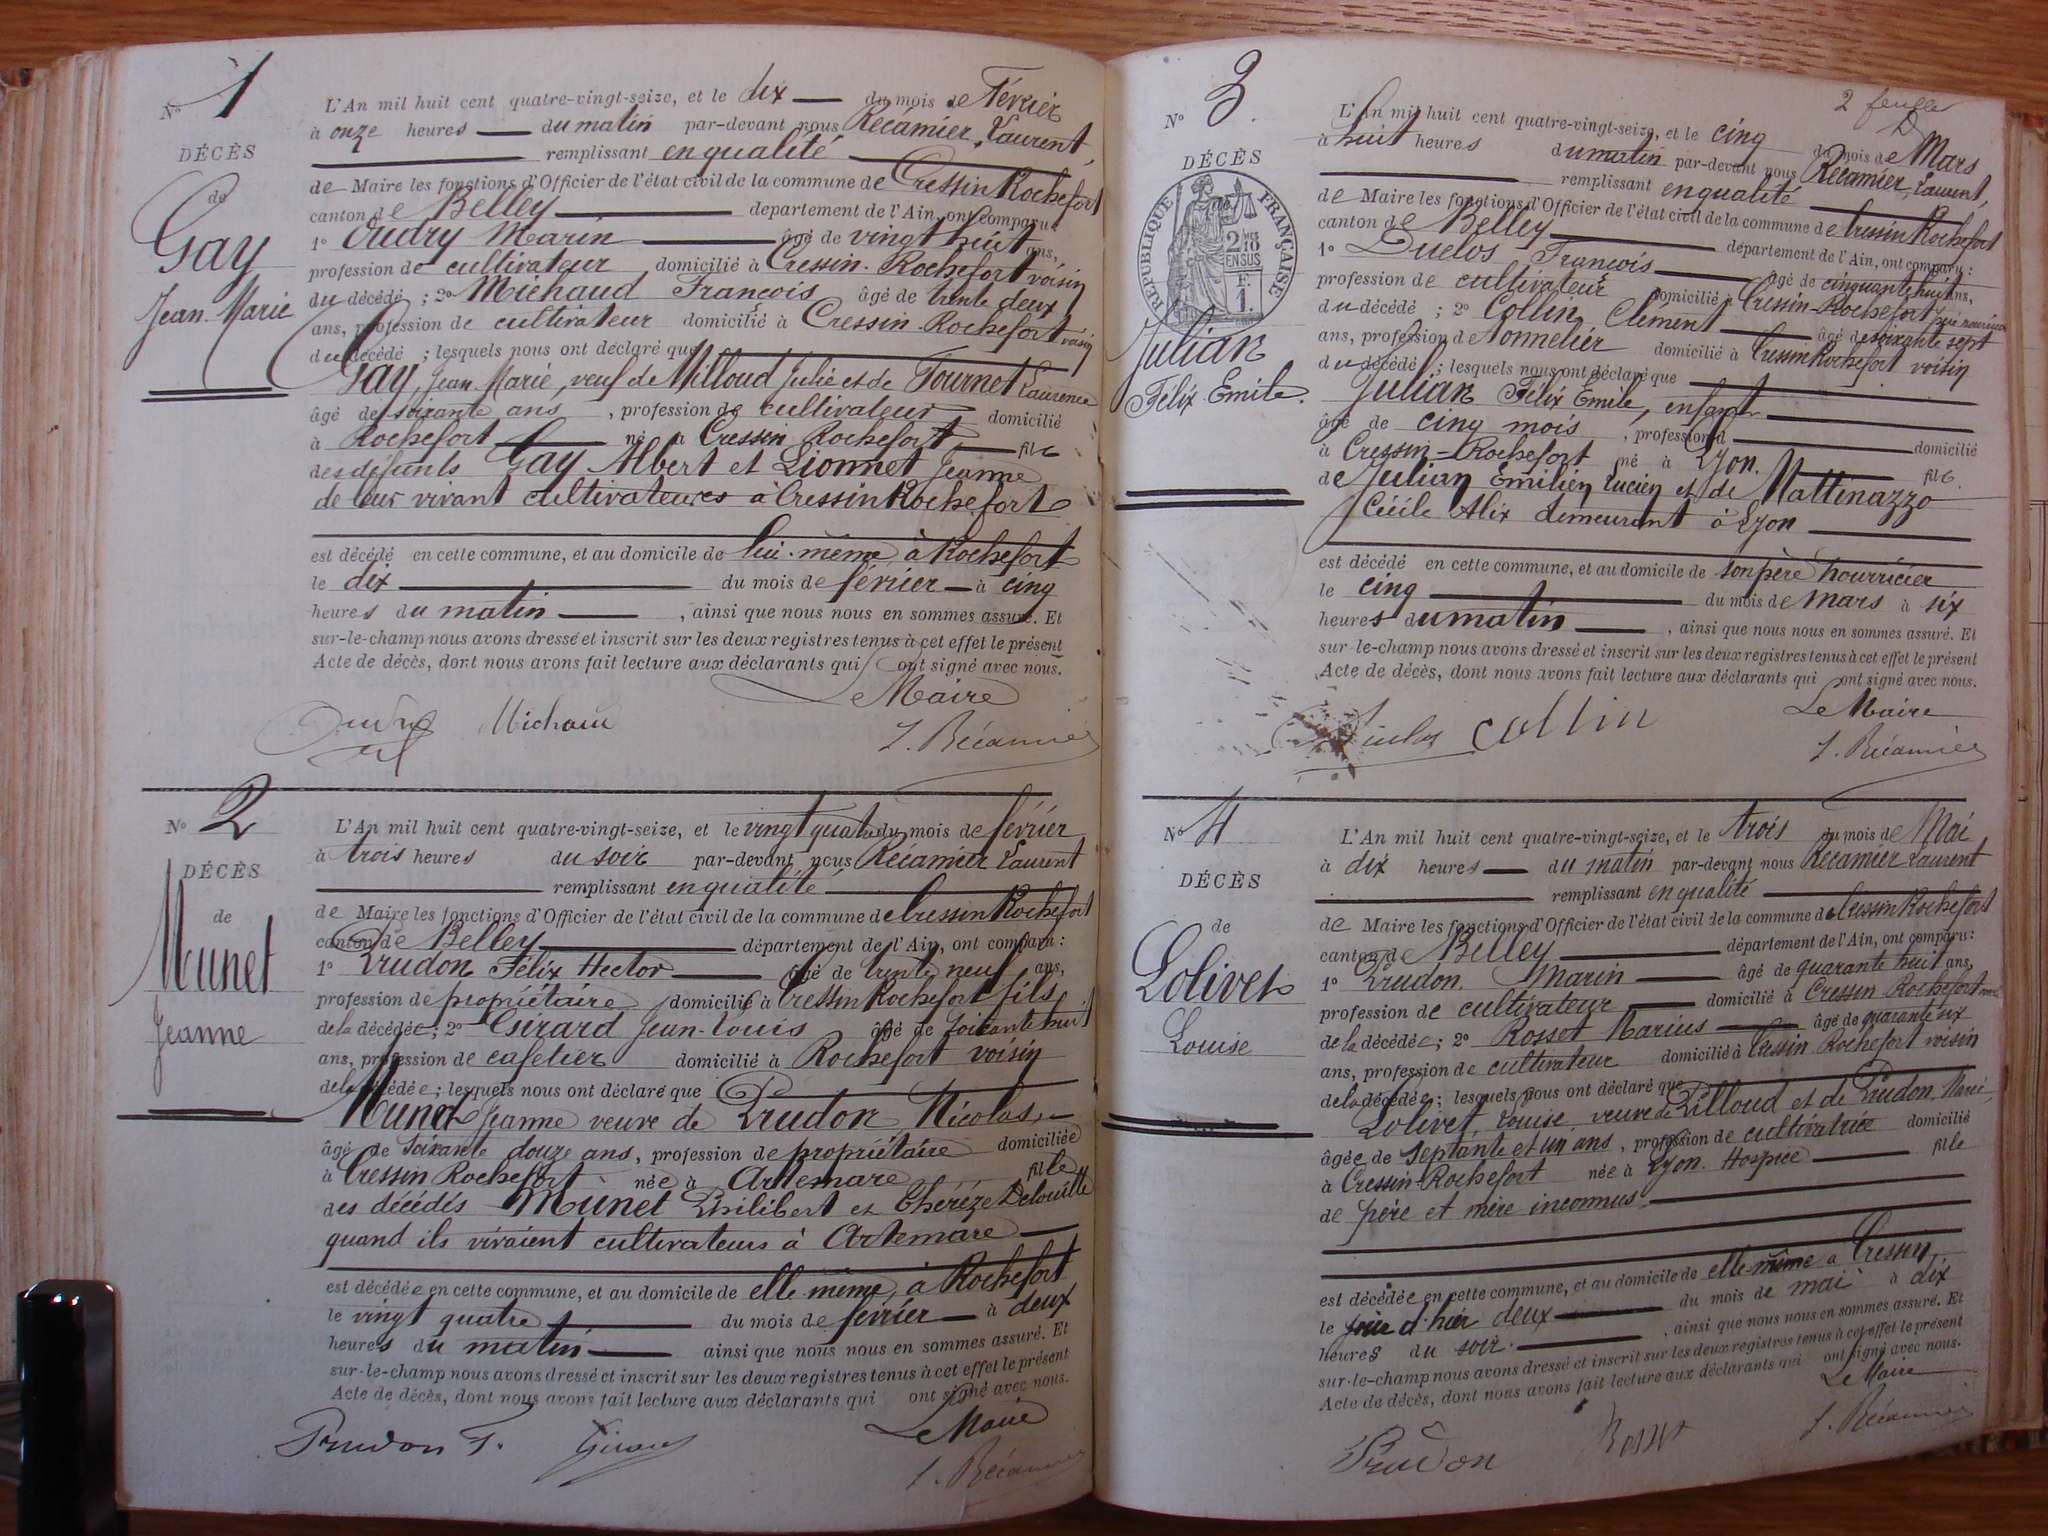 N° 1
DÉCÈS
de
Gay
Jean-Marie
L'An mil huit cent quatre-vingt-seize, et le dix du mois de Février
à onze heures du matin par-devant nous Récamier, Laurent,
remplissant en qualité
de Maire les fonctions d'Officier de l'état civil de la commune de Cressin Rochefort
canton de Belley département de l'Ain, ont comparu:
1° Oudry Marin âgé de vingt huit ans,
profession de cultivateur domicilié à Cressin-Rochefort voisin
du décédé; 2° Michaud François âgé de trente deux
ans, profession de cultivateur domicilié à Cressin-Rochefort voisin
du décédé; lesquels nous ont déclaré que
Gay, Jean Marie, veuf de Milloud Julie et de Tournet Laurence
âgé de soixante ans, profession de cultivateur domicilié
à Rochefort né à Cressin Rochefort fils
des défunts Gay Albert et Lionnet Jeanne
de leur vivant cultivateurs à Cressin Rochefort
est décédé en cette commune, et au domicile de lui-même à Rochefort
le dix du mois de février à cinq
heures du matin, ainsi que nous nous en sommes assuré. Et
sur-le-champ nous avons dressé et inscrit sur les deux registres tenus à cet effet le présent
Acte de décès, dont nous avons fait lecture aux déclarants qui ont signé avec nous.
Le Maire
Oudry Michaud L. Récamier
N° 2
DÉCÈS
de
Munet
Jeanne
L'An mil huit cent quatre-vingt-seize, et le vingt quatre du mois de février
à trois heures du soir par-devant nous Récamier Laurent
remplissant en qualité
de Maire les fonctions d'Officier de l'état civil de la commune de Cressin Rochefort
canton de Belley département de l'Ain, ont comparu:
1° Prudon Félix Hector âgé de trente neuf ans,
profession de propriétaire domicilié à Cressin Rochefort fils
de la décédée; 2° Girard Jean-Louis âgé de soixante huit
ans, profession de cafetier domicilié à Rochefort voisin
de la décédée; lesquels nous ont déclaré que
Munet Jeanne veuve de Prudon Nicolas,
âgé de soixante douze ans, profession de propriétaire domiciliée
à Cressin Rochefort née à Artemare fille
des décédés Munet Philibert et Thérèze Delouille
quand ils vivaient cultivateurs à Artemare
est décédée en cette commune, et au domicile de elle même à Rochefort
le vingt quatre du mois de février à deux
heures du matin ainsi que nous nous en sommes assuré. Et
sur-le-champ nous avons dressé et inscrit sur les deux registres tenus à cet effet le présent
Acte de décès, dont nous avons fait lecture aux déclarants qui ont signé avec nous.
Le Maire
Prudon F. Girard L. Récamier
2 feuillet
N° 3
DÉCÈS
RÉPUBLIQUE FRANÇAISE
2 10
EN SUS
F.
1.
Julian
Félix Emile.
L'An mil huit cent quatre-vingt-seize, et le cinq du mois de Mars
à huit heures du matin par-devant nous Récamier, Laurent,
remplissant en qualité
de Maire les fonctions d'Officier de l'état civil de la commune de Cressin Rochefort
canton de Belley département de l'Ain, ont comparu:
1° Duclos François âgé de cinquante huit ans,
profession de cultivateur domicilié à Cressin-Rochefort père nourricier
du décédé; 2° Collin Clément âgé de soixante sept
ans, profession de Tonnelier domicilié à Cressin Rochefort voisin
du décédé; lesquels nous ont déclaré que
Julian Félix Emile, enfant
âgé de cinq mois, profession d domicilié
à Cressin-Rochefort né à Lyon. fils
de Julian Emilien Lucien et de Mattinazzo
Cécile Alix demeurant à Lyon
est décédé en cette commune, et au domicile de son père nourricier
le cinq du mois de mars à six
heures du matin, ainsi que nous nous en sommes assuré. Et
sur-le-champ nous avons dressé et inscrit sur les deux registres tenus à cet effet le présent
Acte de décès, dont nous avons fait lecture aux déclarants qui ont signé avec nous.
Le Maire
Duclos Collin L. Récamier
N° 4
DÉCÈS
de
Lolivet
Louise
L'An mil huit cent quatre-vingt-seize, et le trois du mois de Mai
à dix heures du matin par-devant nous Récamier Laurent
remplissant en qualité
de Maire les fonctions d'Officier de l'état civil de la commune de Cressin Rochefort
canton de Belley département de l'Ain, ont comparu:
1° Prudon Marin âgé de quarante huit ans,
profession de cultivateur domicilié à Cressin Rochefort
de la décédée; 2° Rosset Marius âgé de quarante six
ans, profession de cultivateur domicilié à Cressin Rochefort voisin
de la décédée; lesquels nous ont déclaré que
Lolivet, Louise, veuve de Pilloud et de Prudon Marie,
âgée de septante et un ans, profession de cultivatrice domicilié
à Cressin-Rochefort née à Lyon. Hospice fille
de père et mère inconnus.
est décédée en cette commune, et au domicile de elle même à Cressin,
le jour d'hier deux du mois de mai à dix
heures du soir, ainsi que nous nous en sommes assuré. Et
sur-le-champ nous avons dressé et inscrit sur les deux registres tenus à cet effet le présent
Acte de décès, dont nous avons fait lecture aux déclarants qui ont signé avec nous.
Le Maire
Prudon Rosset L. Récamier